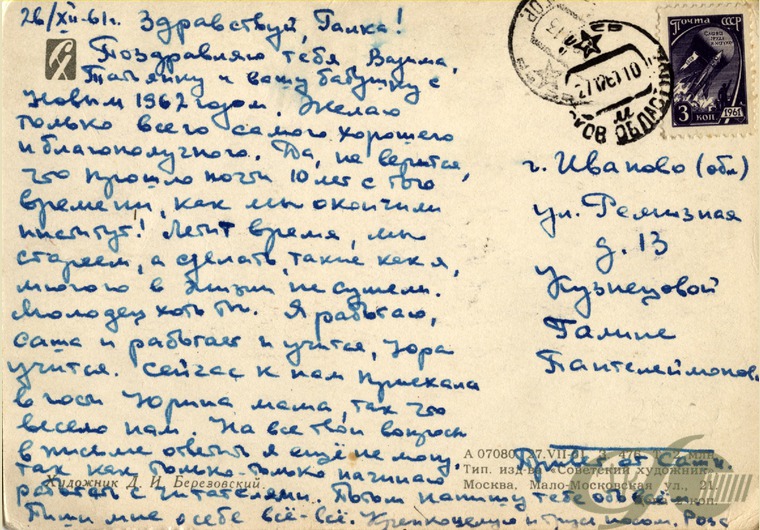 26/XII-61г. Здравствуй, Галка!
Поздравляю тебя, Вадима,
Татьянку и вашу бабушку с
Новым 1962 годом. Желаю
только всего самого хорошего
и благополучного. Да, не верится,
что прошло почти 10 лет с того
времени, как мы окончили
институт! Летит время, мы
стареем, а сделать, такие как я,
многого в жизни не сумели.
Молодец хоть ты. Я работаю,
Саша и работает и учится, Юра
учится. Сейчас к нам приехала
в гости Юрина мама, так что
весело нам. На все твои вопросы
в письме ответить я ещё не могу,
так как только-только начинаю
работать с читателями. Потом напишу тебе обо всём.
Пиши мне о себе всё-всё. Крепко целую и
Привет от Саши.
Художник Д. И. Березовский
ПОЧТА СССР
3 КОП
1961
г. Иваново (обл)
ул.
д. 13
Кузнецовой
Галине
Пантелеймоновне
А 07080 27.VII-61
Тип. изд-ва «Советский художник»
Москва, Мало-Московская ул., 21.